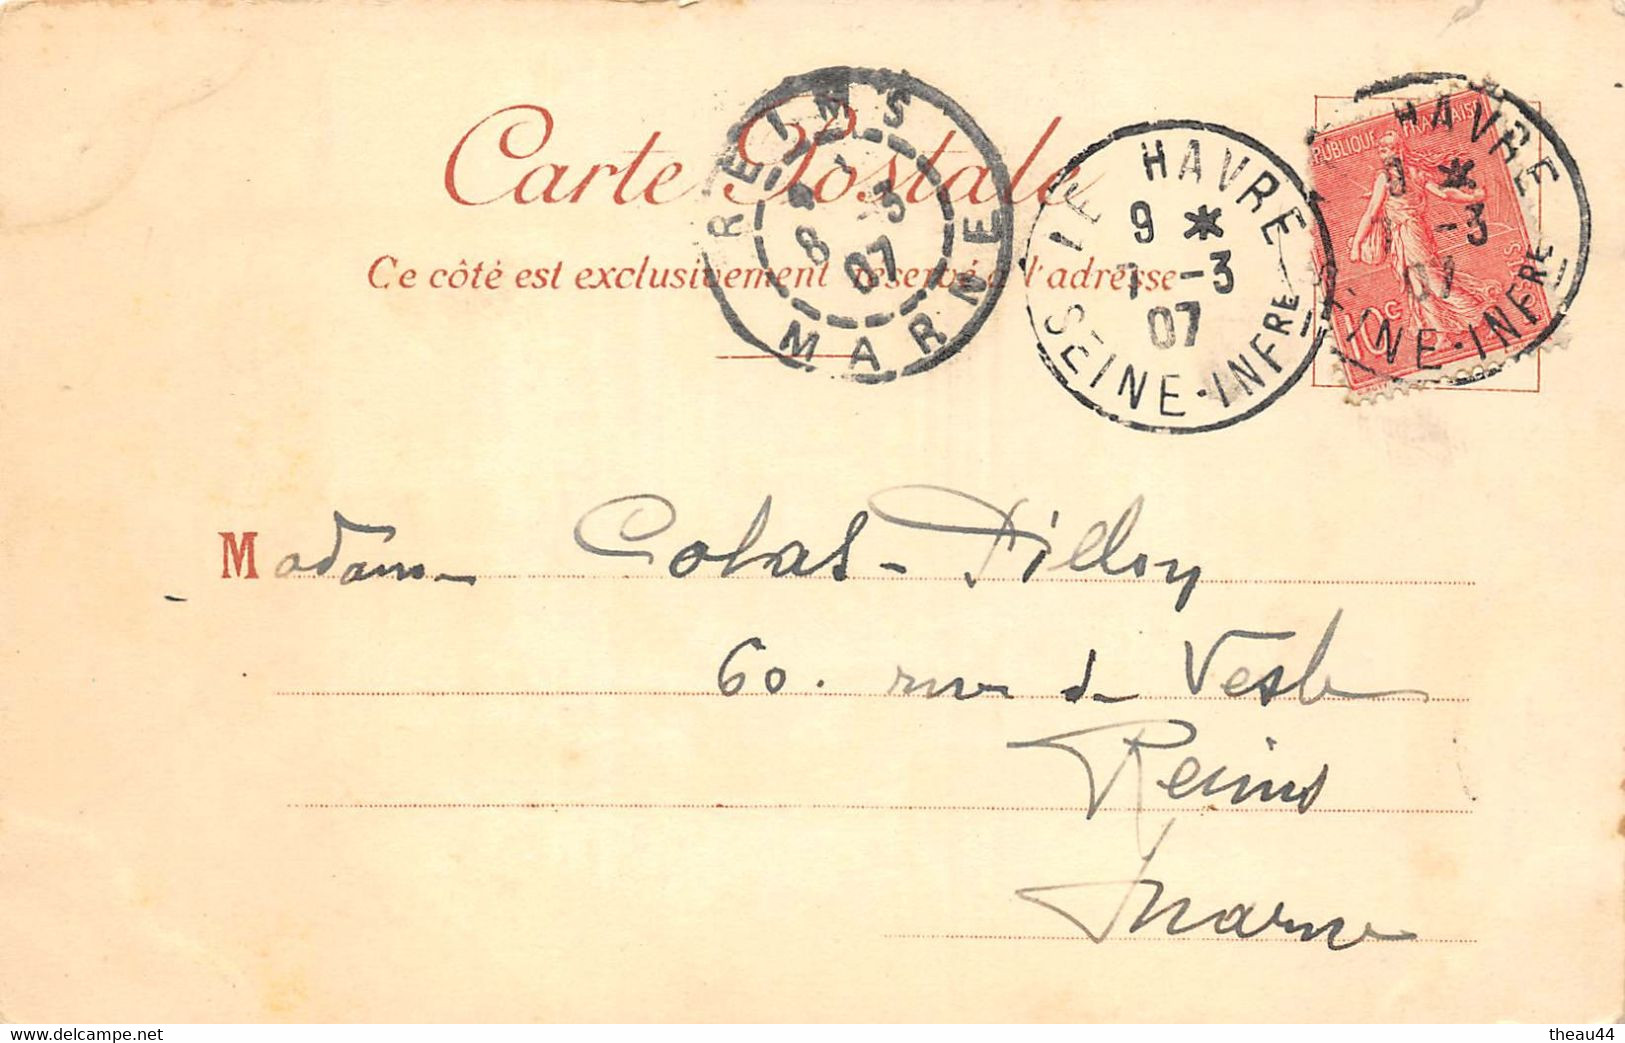 Carte Postale
Ce côté est exclusivement réservé à l'adresse
REIMS
8 -3
07
MARNE
LE HAVRE
9 *
7 -3
07
SEINE-INFRE
RÉPUBLIQUE FRANÇAISE
10c
HAVRE
9 *
7 -3
07
SEINE-INFRE
Madame Colas-Dilloy
60. rue de Vesle
Reims
Marne
www.delcampe.net
theau44